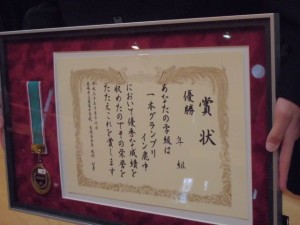 賞状
優勝 年 組
あなたの学級は
一本グランプリ
イン鹿中
において優秀な成績を
収めたのでその栄誉を
たたえこれを賞します